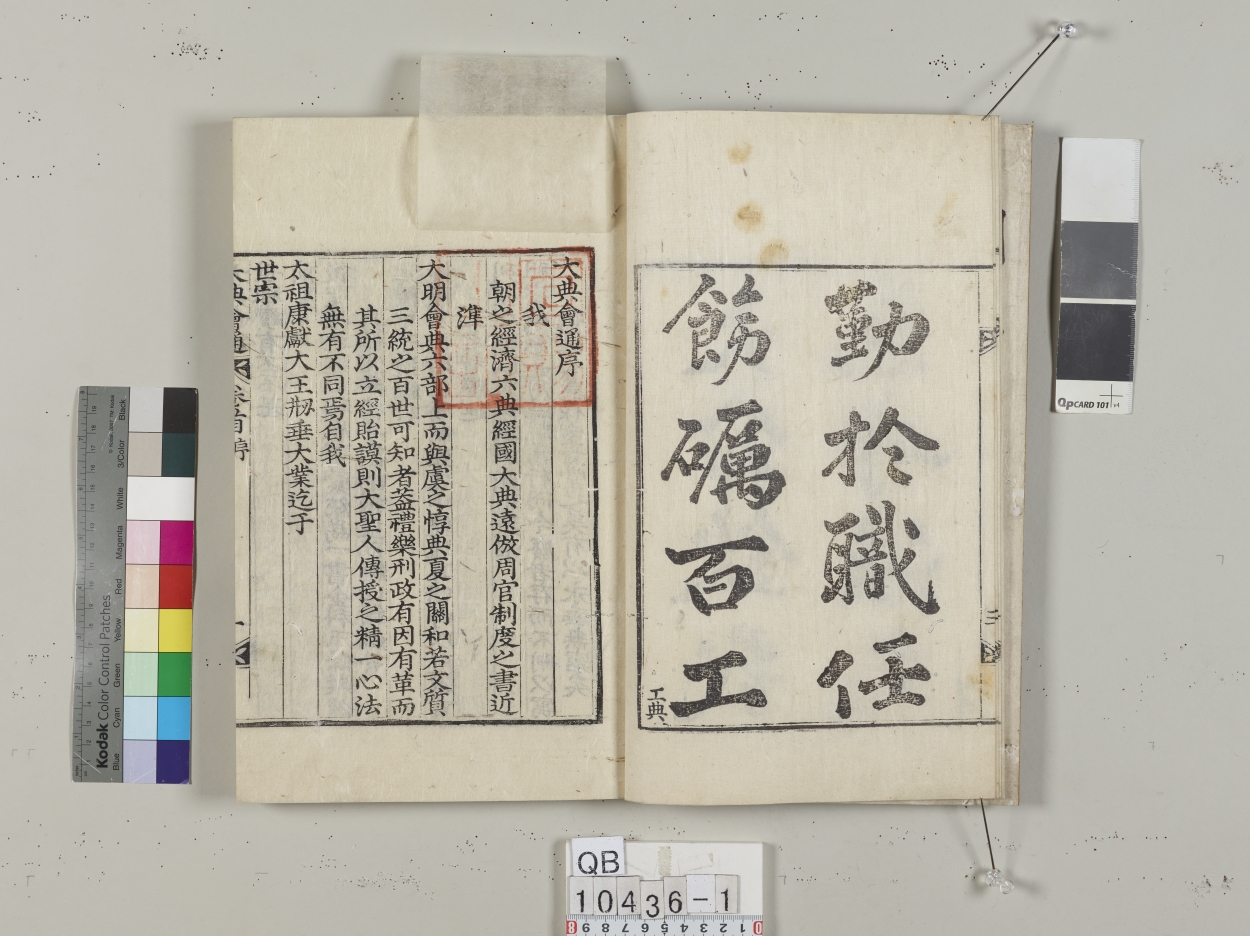 勤於職任
飭礪百工
工典
大典會通序
我
朝之經濟六典經國大典遠倣周官制度之書近
準
大明會典六部上而與虞之惇典夏之關和若文質
三統之百世可知者蓋禮樂刑政有因有革而
其所以立經貽謨則大聖人傳授之精一心法
無有不同焉自我
太祖康獻大王刱垂大業迄于
世宗
大典會通
卷首
序
一
三
QB
10436-1
Kodak Color Control Patches
Blue
Cyan
Green
Yellow
Red
Magenta
White
3/Color
Black
QPCARD 101 v4
0 1 2 3 4 5 6 7 8 9